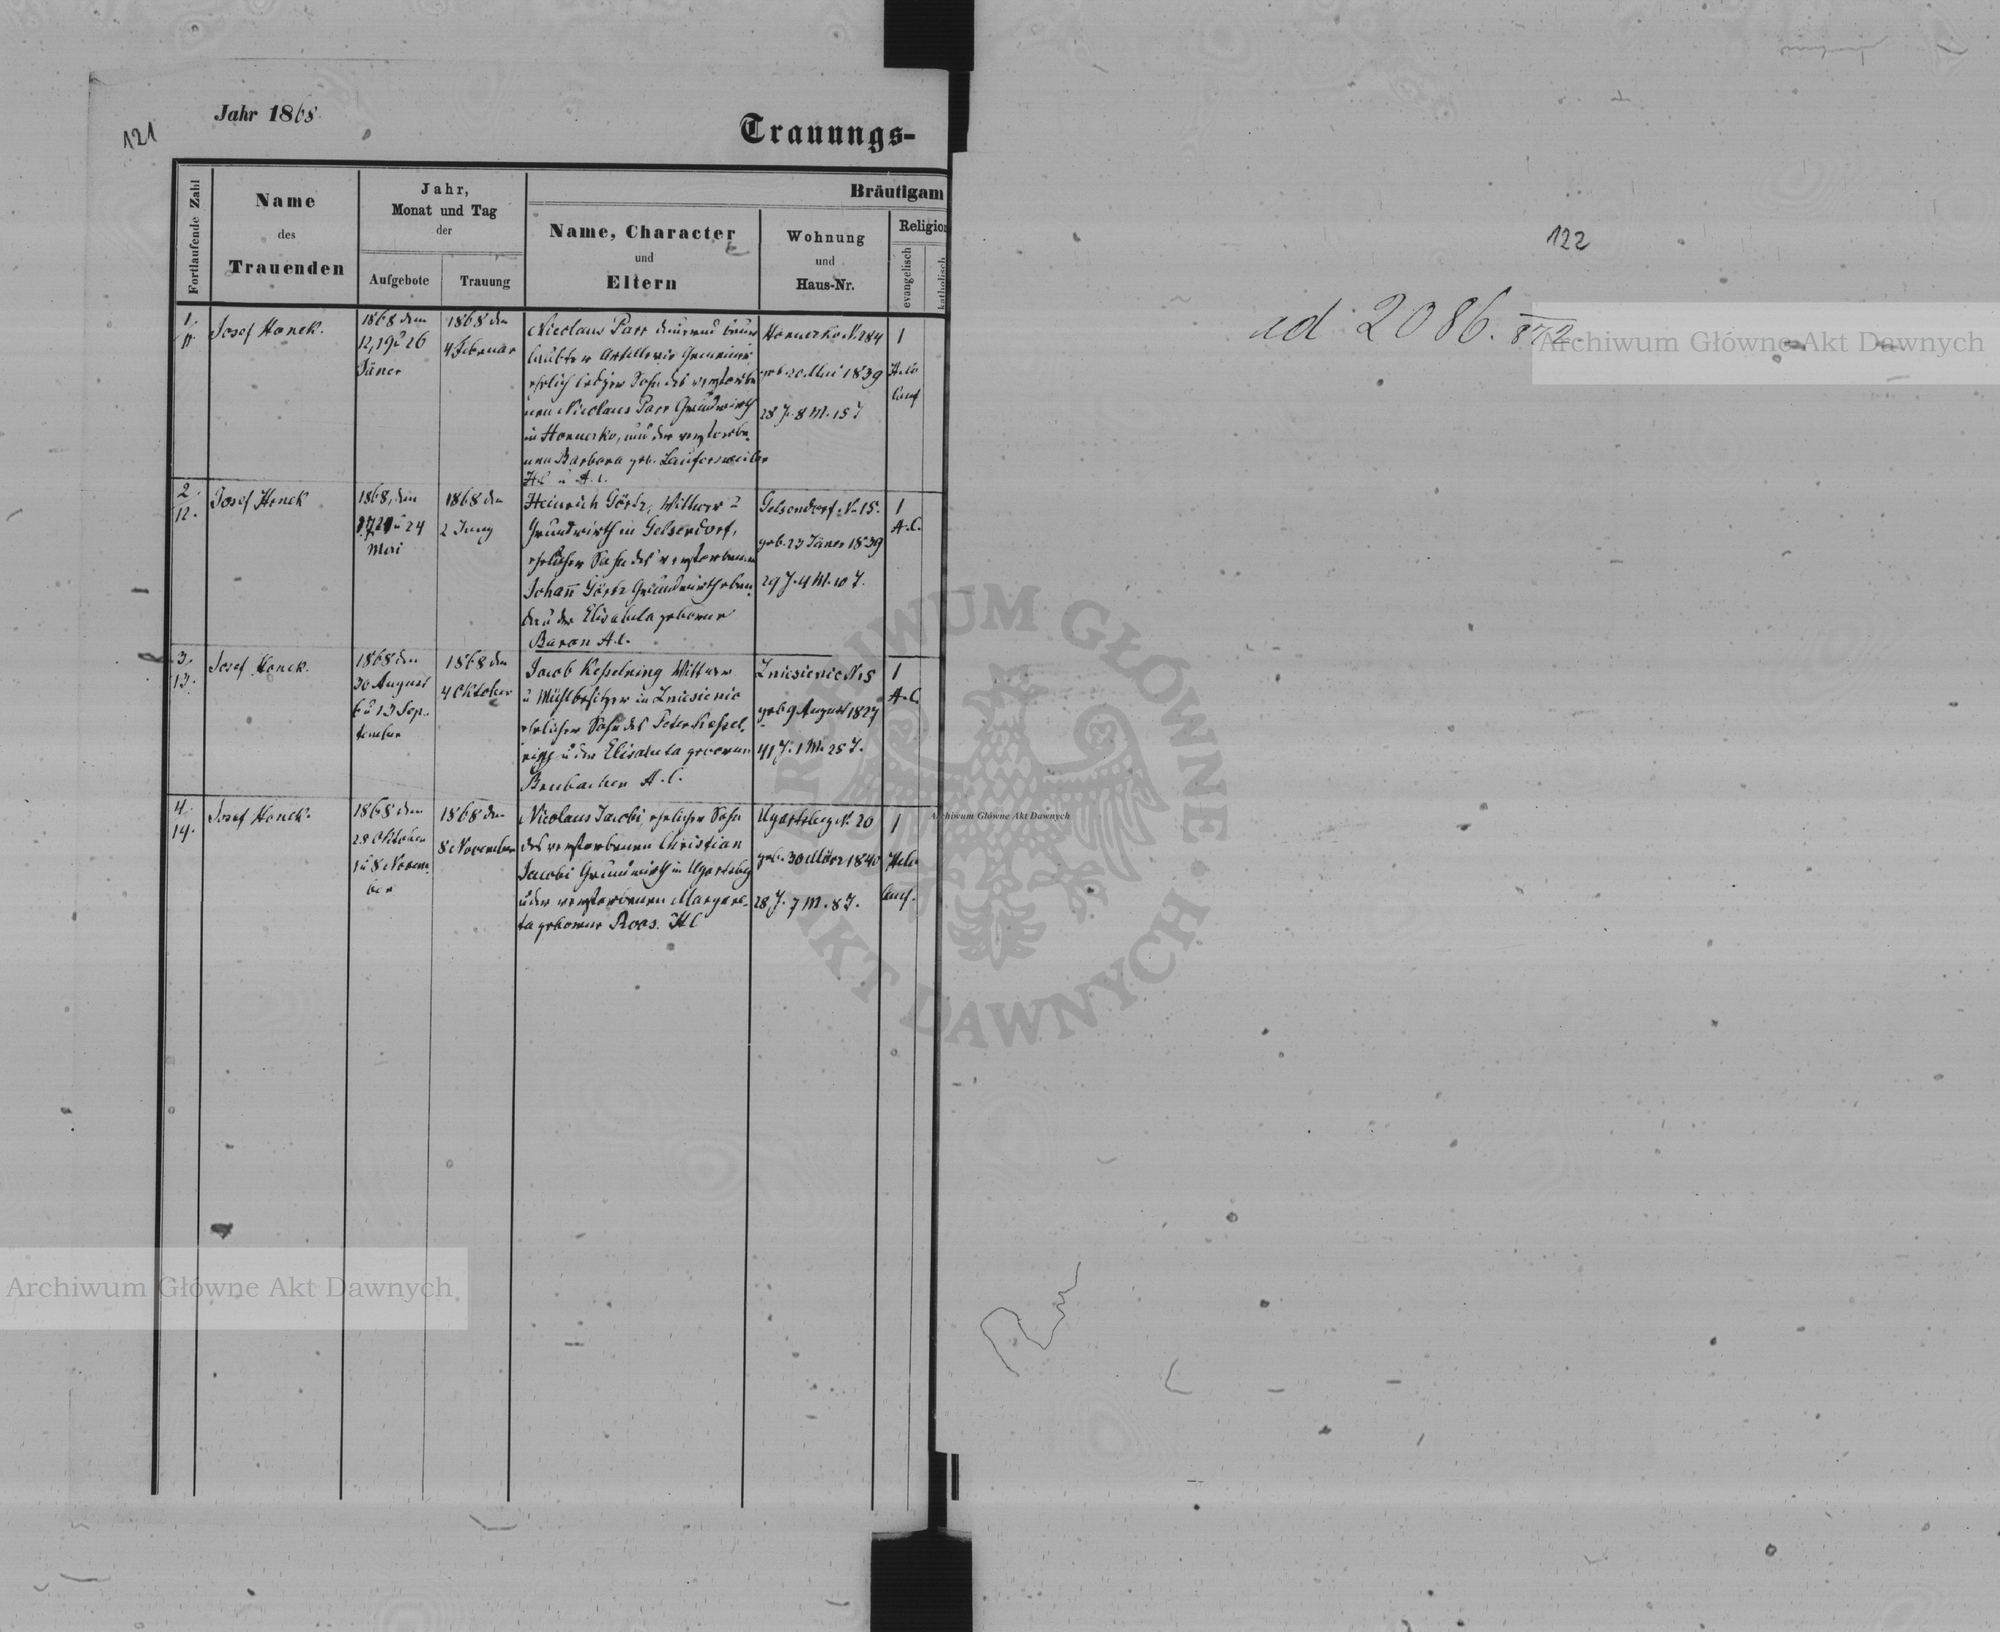 121
Jahr 1868
Trauungs-
Fortlaufende Zahl
Name
des
Trauenden
Jahr,
Monat und Tag
der
Aufgebote
Trauung
Bräutigam
Name, Character
und
Eltern
Wohnung
und
Haus-Nr.
Religion
evangelisch
katholisch
1
Josef Honek.
1868 den
12, 19 u 26
Jäner
1868 den
4 Februar
Nicolaus Parr
Artillerie Gemeiner
ehelich lediger Sohn des verstorbe
nen Nicolaus Parr Grundwirth
in Hanuerko, und der verstorbe-
nen Barbara geb. Laufersweiler
H.C. u A.C.
geb. 20 Mai 1839
28 J. 8 M. 15 T
1
Helv
Conf
2
12.
Josef Honek
1868, den
17 21 u 24
Mai
1868 den
2 Juny
Heinrich Görtz, Wittwer u
Grundwirth in Gelsendorf,
ehelicher Sohn des verstorbenen
Johann Görtz Grundwirth eben
da u der Elisabeta geborene
Baron A.C.
Gelsendorf N. 15.
geb. 23 Jäner 1839
29 J. 4 M. 10 T.
1
A.C.
3.
13.
Josef Honek.
1868 den
30 August
6 u 13 Sep-
tember
1868 den
4 Oktober
Jacob Kesselring Wittwer
u Mühlbesitzer in Zniesienie
ehelicher Sohn des Peter Kessel-
ring u der Elisabeta geborenen
Brubacher A.C.
Zniesienie N. 5
geb 9 August 1827
41 J. 1 M. 25 T.
1
A.C.
4.
14.
Josef Honek.
1868 den
28 Oktober
1 u 8 Novem-
ber
1868 den
8 November
Nicolaus Jacobi, ehelicher Sohn
des verstorbenen Christian
Jacobi Grundwirth in Ugartsberg
u der verstorbenen Margare-
ta geborene Roos. H.C
Ugartsberg N. 20
geb. 30 März 1840
28 J. 7 M. 8 T.
1
Helv
Conf.
122
ad 2086.
872.
Archiwum Główne Akt Dawnych
ARCHIWUM GŁÓWNE · AKT DAWNYCH ·
Archiwum Główne Akt Dawnych
Archiwum Główne Akt Dawnych